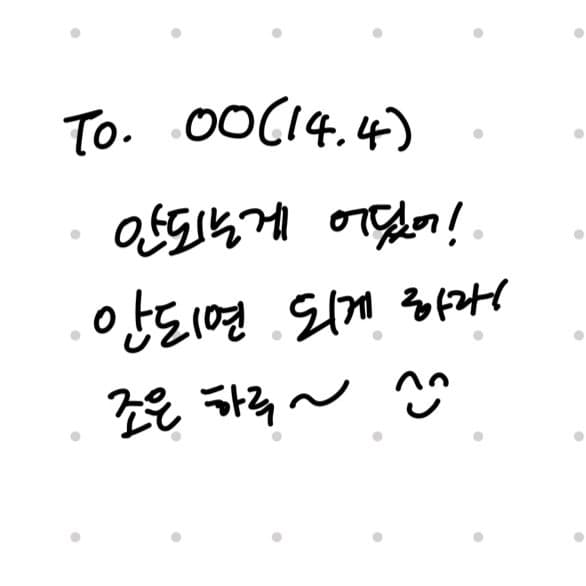 To. 00(14.4)
안되는게 어딨어!
안되면 되게 하라!
조은 하루~ ^^